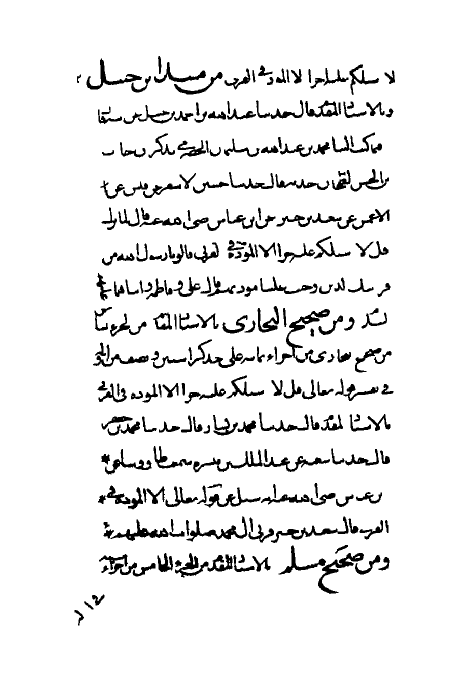 لا اسلكم عليه اجرا الا المودة في القربى من مسند ابن حنبل
وبالاسناد المقدم قال حدثنا عبد الله بن احمد بن حنبل
فيما كتب الينا محمد بن عبد الله بن سليمان الحضرمي يذكر ان حرب
بن الحسن الطحان حدثهم قال حدثنا حسين الاشقر عن قيس عن
الاعمش عن سعيد بن جبير عن ابن عباس رضي الله عنه قال لما نزلت
قل لا اسلكم عليه اجرا الا المودة في القربى قالوا يا رسول الله من
قرابتك الذين وجبت علينا مودتهم قال علي وفاطمة وابناهما
ومن صحيح البخاري بالاسناد المقدم من الجزء
من صحيح البخاري من اجزاء ثمانية على حد كراسين ونصف من
في تفسير قوله تعالى قل لا اسلكم عليه اجرا الا المودة في القربى
بالاسناد المقدم قال حدثنا محمد بن بشار قال حدثنا محمد بن جعفر
قال حدثنا شعبة عن عبد الملك بن ميسرة سمعت طاووسا عن
ابن عباس رضي الله عنه انه سئل عن قوله تعالى الا المودة في
القربى قال سعيد بن جبير قربى ال محمد صلوات الله عليهم
ومن صحيح مسلم بالاسناد المقدم من الجزء الخامس من اجزاء ستة